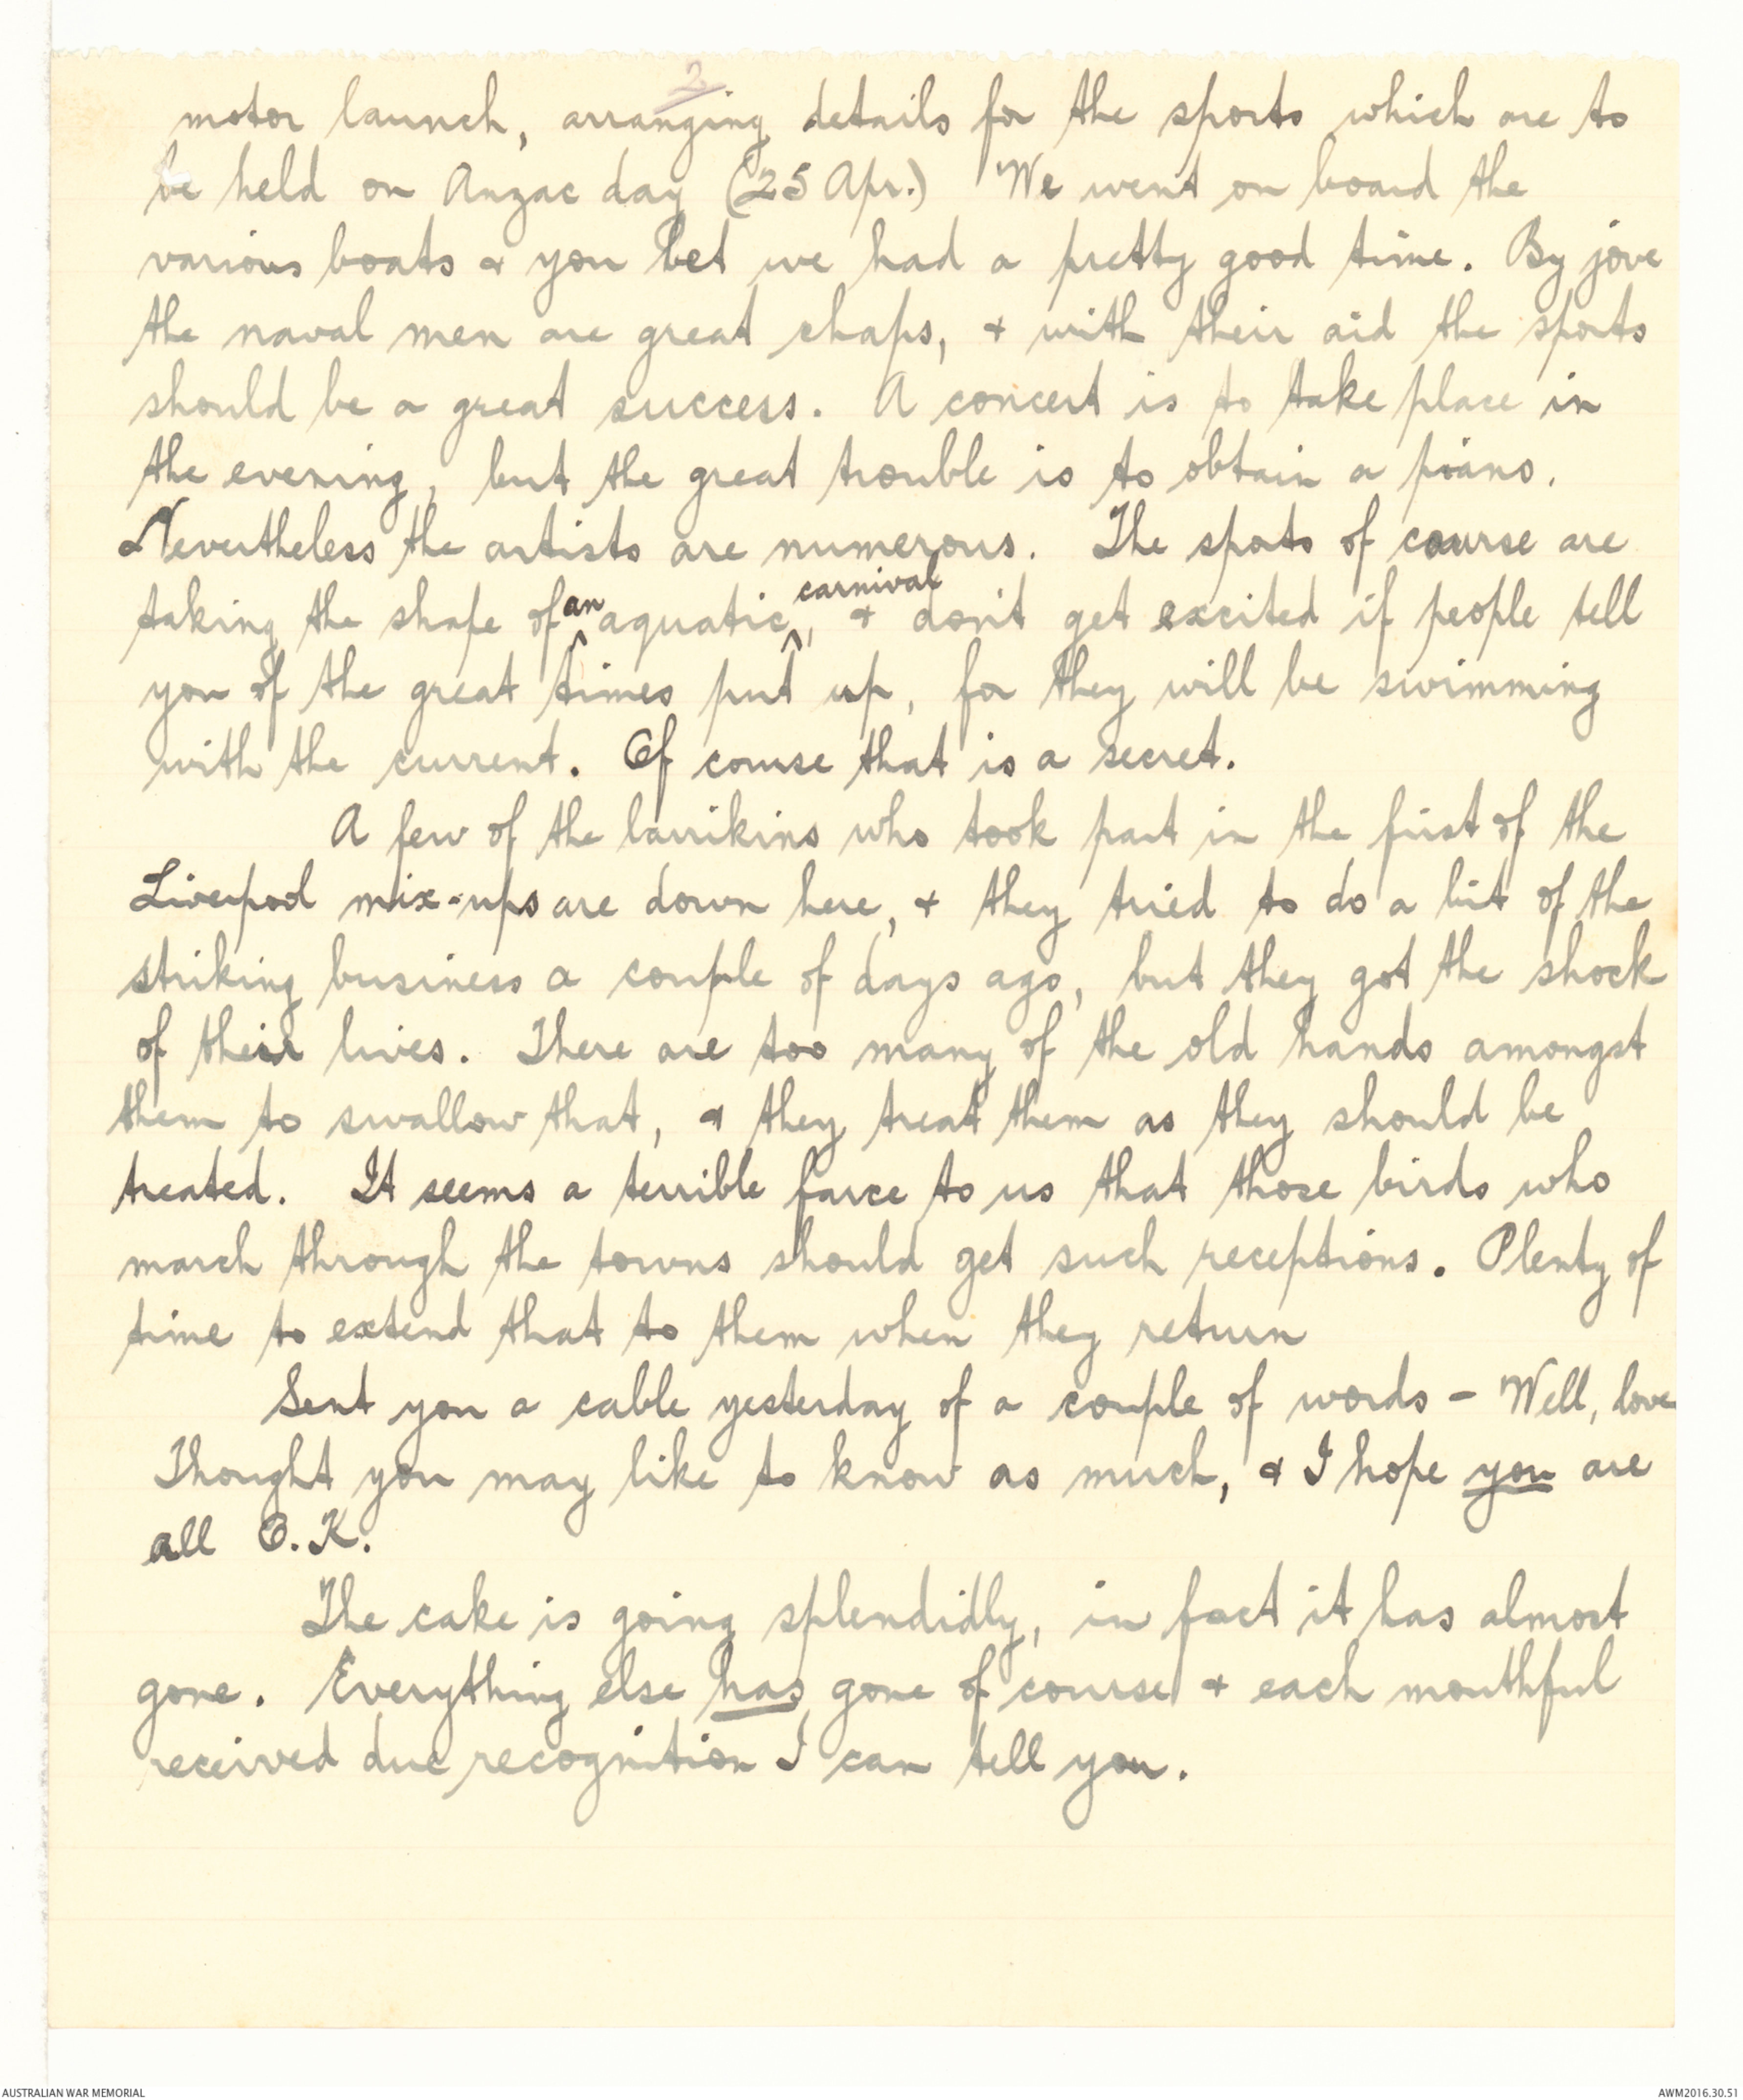 2
motor launch, arranging details for the sports which are to
be held on Anzac day (25 Apr.) We went on board the
various boats & you bet we had a pretty good time. By jove
the naval men are great chaps, & with their aid the sports
should be a great success. A concert is to take place in
the evening, but the great trouble is to obtain a piano.
Nevertheless the artists are numerous. The sports of course are
taking the shape of an aquatic carnival, & don't get excited if people tell
you of the great times put up, for they will be swimming
with the current. Of course that is a secret.
A few of the larrikins who took part in the first of the
Liverpool mix-ups are down here, & they tried to do a bit of the
striking business a couple of days ago, but they got the shock
of their lives. There are too many of the old hands amongst
them to swallow that, & they treat them as they should be
treated. It seems a terrible farce to us that those birds who
march through the towns should get such receptions. Plenty of
time to extend that to them when they return
Sent you a cable yesterday of a couple of words - Well, love
Thought you may like to know as much, & I hope you are
all O.K.
The cake is going splendidly, in fact it has almost
gone. Everything else has gone of course & each mouthful
received due recognition I can tell you.
AUSTRALIAN WAR MEMORIAL
AWM2016.30.51